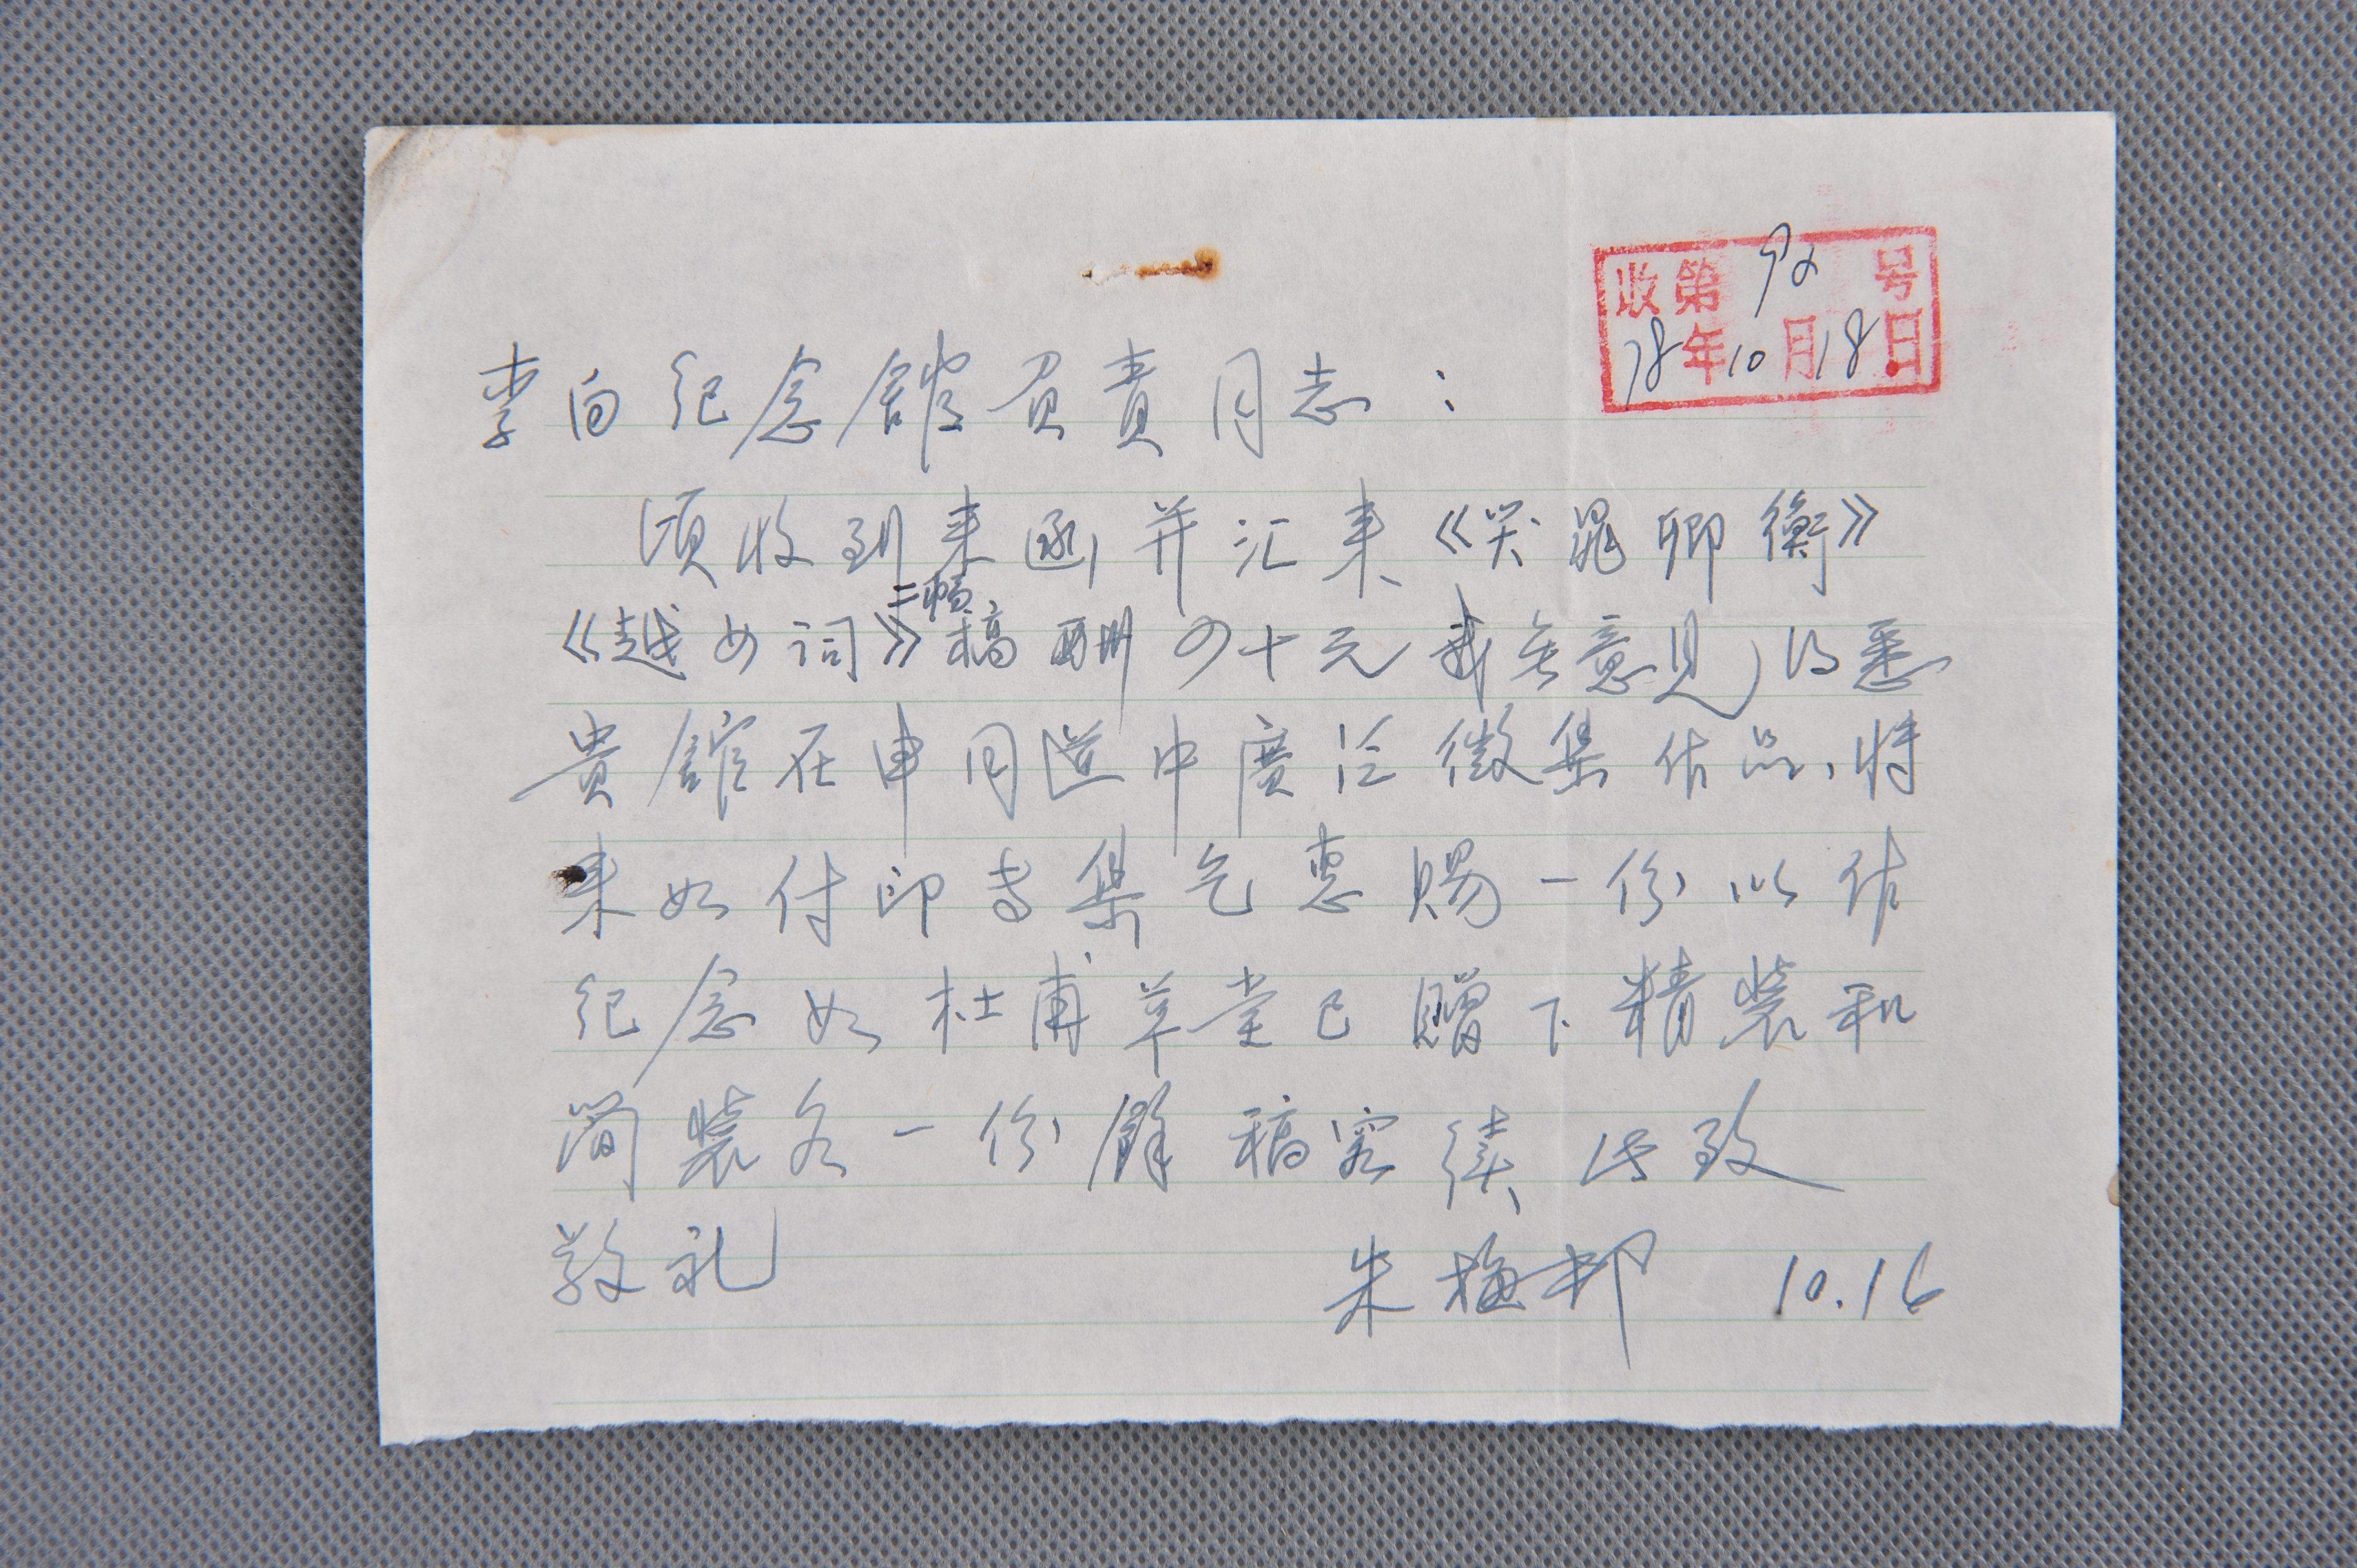 收第92号
78年10月18日
李白纪念館負責同志：
頃收到来函并汇来《哭晁卿衡》
《越女词》二幅稿酬四十元我無意見，得悉
貴館在申同道中廣泛徵集作品，将
来如付印专集乞惠賜一份以作
纪念如杜甫草堂已贈下精装和
简装各一份餘稿容续 此致
敬礼
朱梅邨 10.16